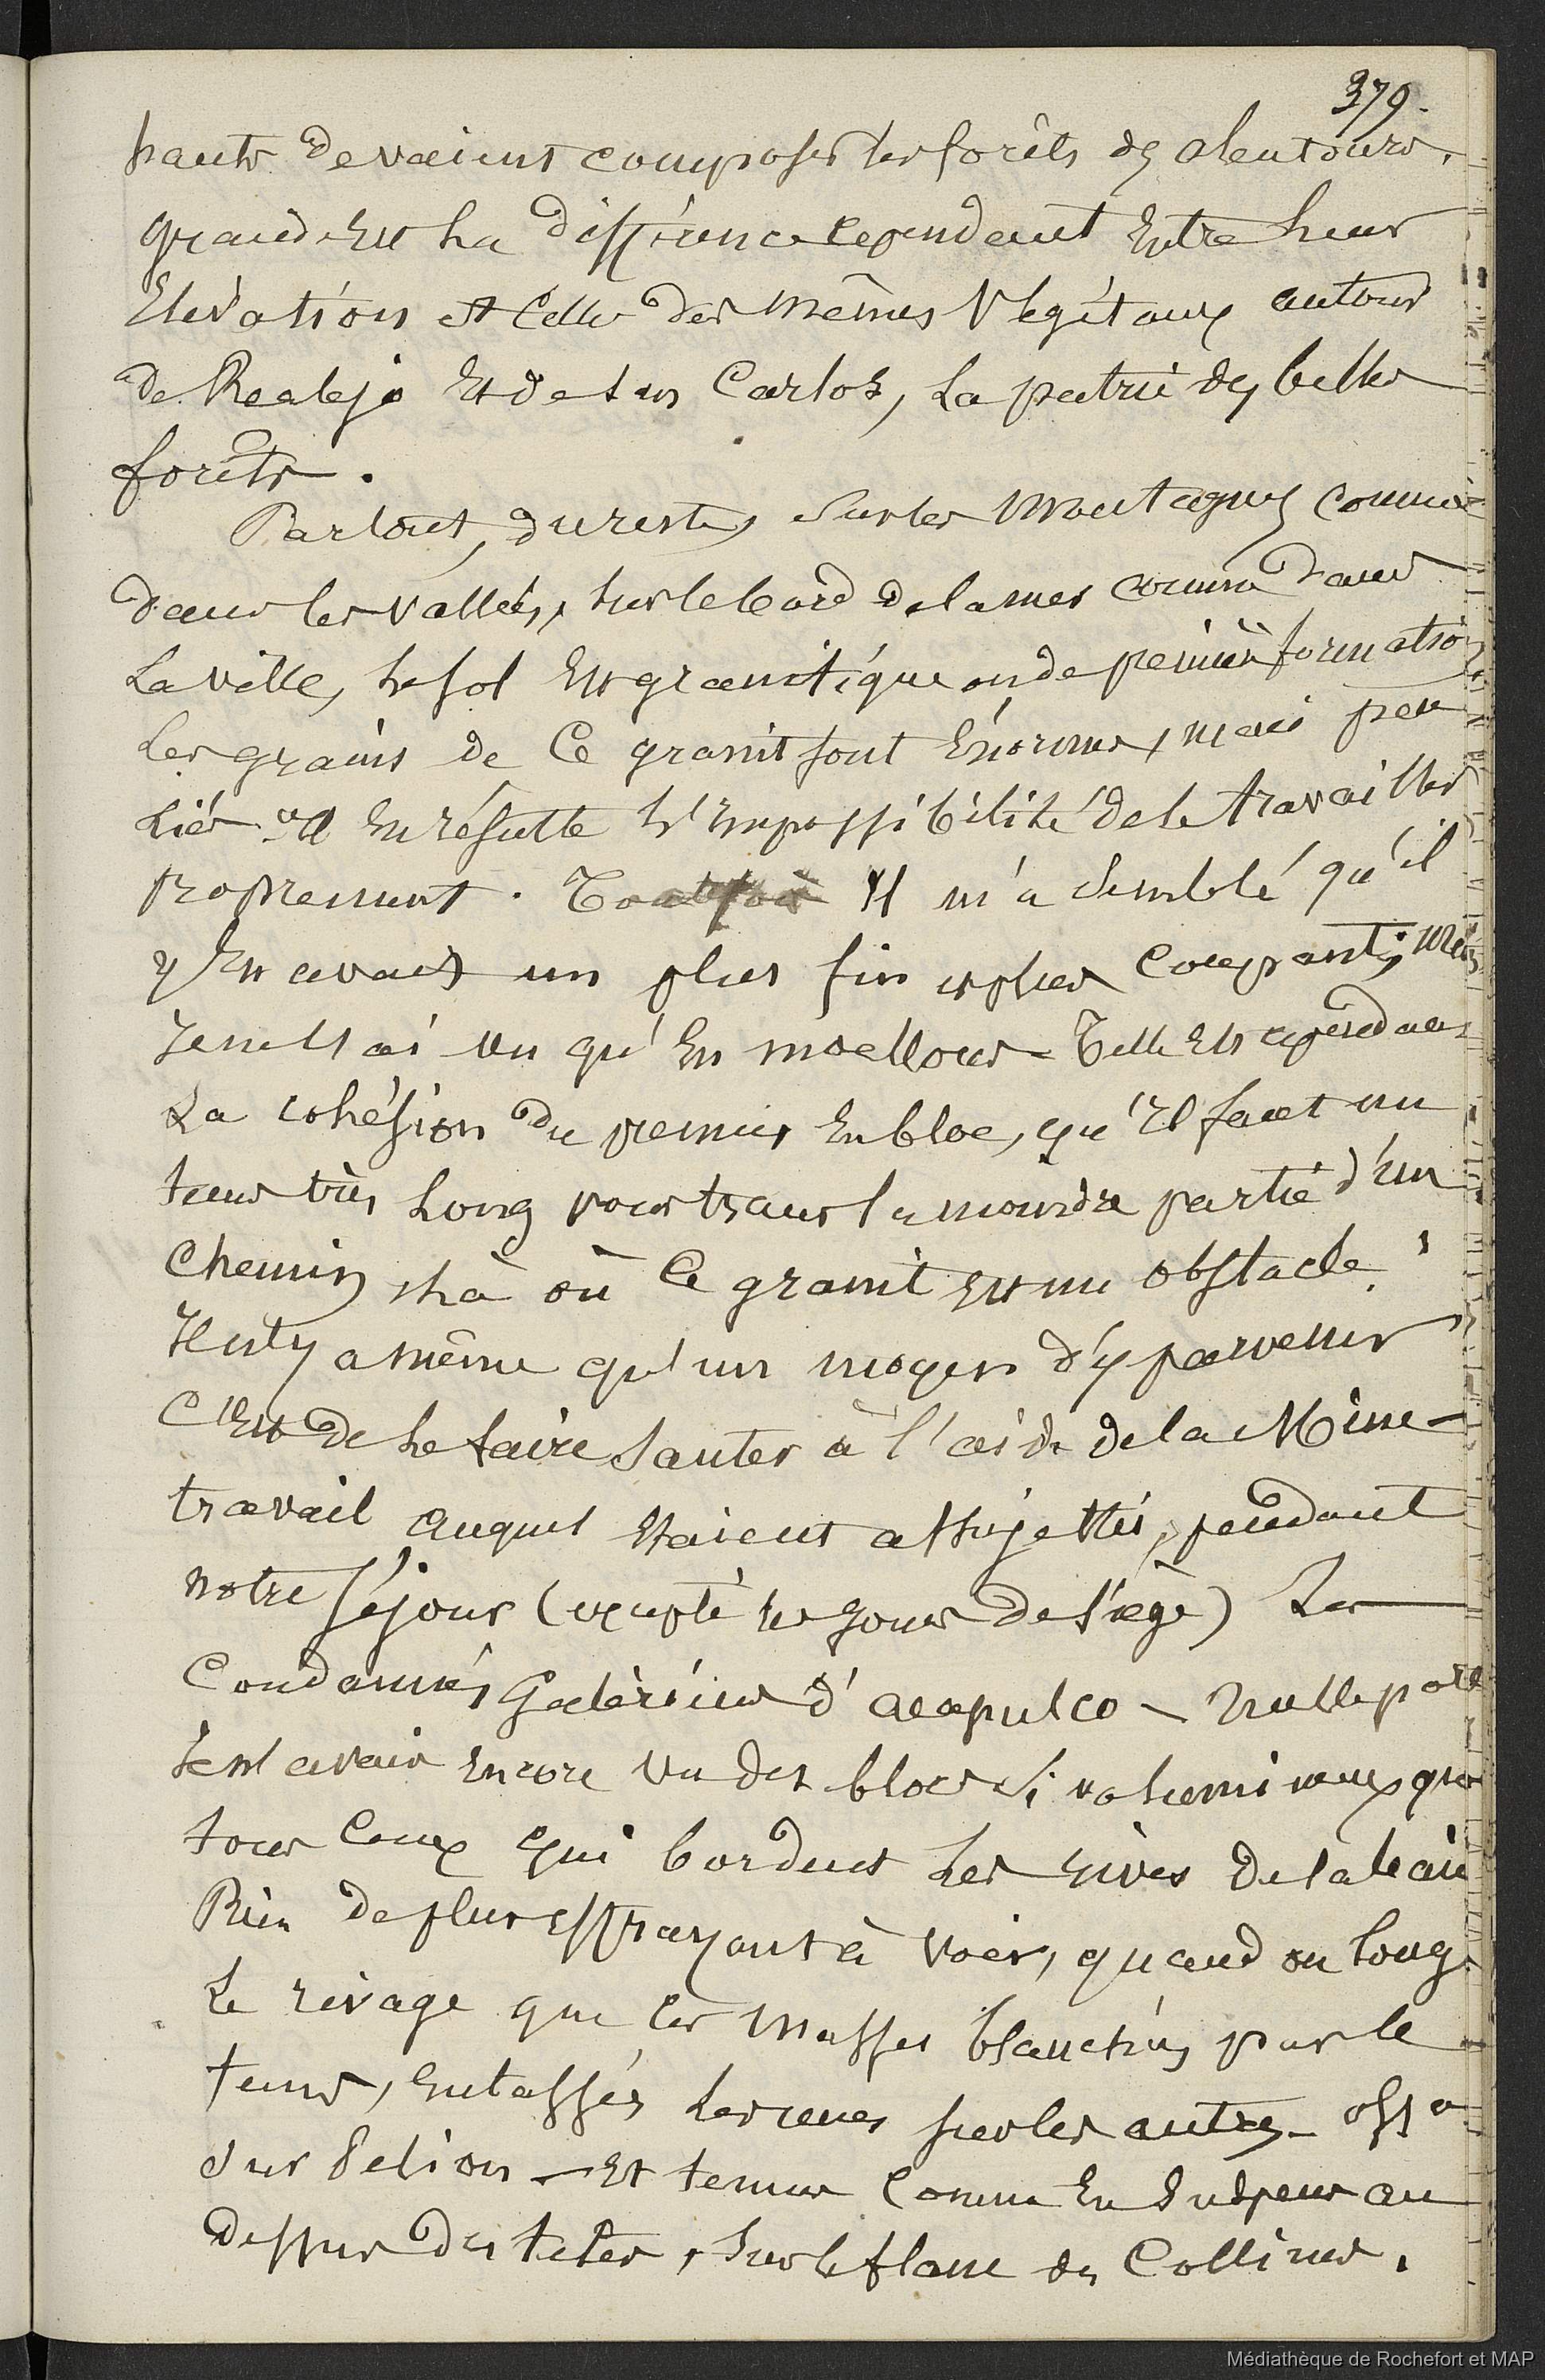 379.
hauts devaient composer les forêts des alentours.
grande est la différence cependant entre leur
élévation et celle des mêmes végétaux autour
de Realejo et de san Carlos, la patrie des belles
forêts.
Partout, du reste, sur les montagnes comme
dans les vallées, sur le bord de la mer comme dans
la ville, le sol est granitique ou de première formation
les grains de ce granit sont énormes, mais peu
liés. Il en résulte l'impossibilité de le travailler
proprement. Toutefois Il m'a semblé qu'il
y en avait un plus fin et plus compact; mais
je ne l'ai vu qu'en moellons - Telle est cependant
la cohésion du premier en bloc, qu'il faut un
tems très long pour tracer la moindre partie d'un
chemin, là où ce granit est un obstacle.
Il n'y a même qu'un moyen d'y parvenir
C'est de le faire sauter à l'aide de la Mine -
travail auquel étaient assujettis, pendant
notre séjour (excepté les jours de siège) Les
Condamnés galériens d'acapulco - Nulle part
je n'avais encore vu des blocs si volumineux que
tous ceux qui bordent les rives de la baie
Rien de plus effrayant à voir, quand on longe
le rivage que ces masses blanchies par le
tems, entassées les unes sur les autres - ossa
sur Pelion - et tenues comme en suspens au
dessus des têtes, sur le flanc des Collines.
Médiathèque de Rochefort et MAP